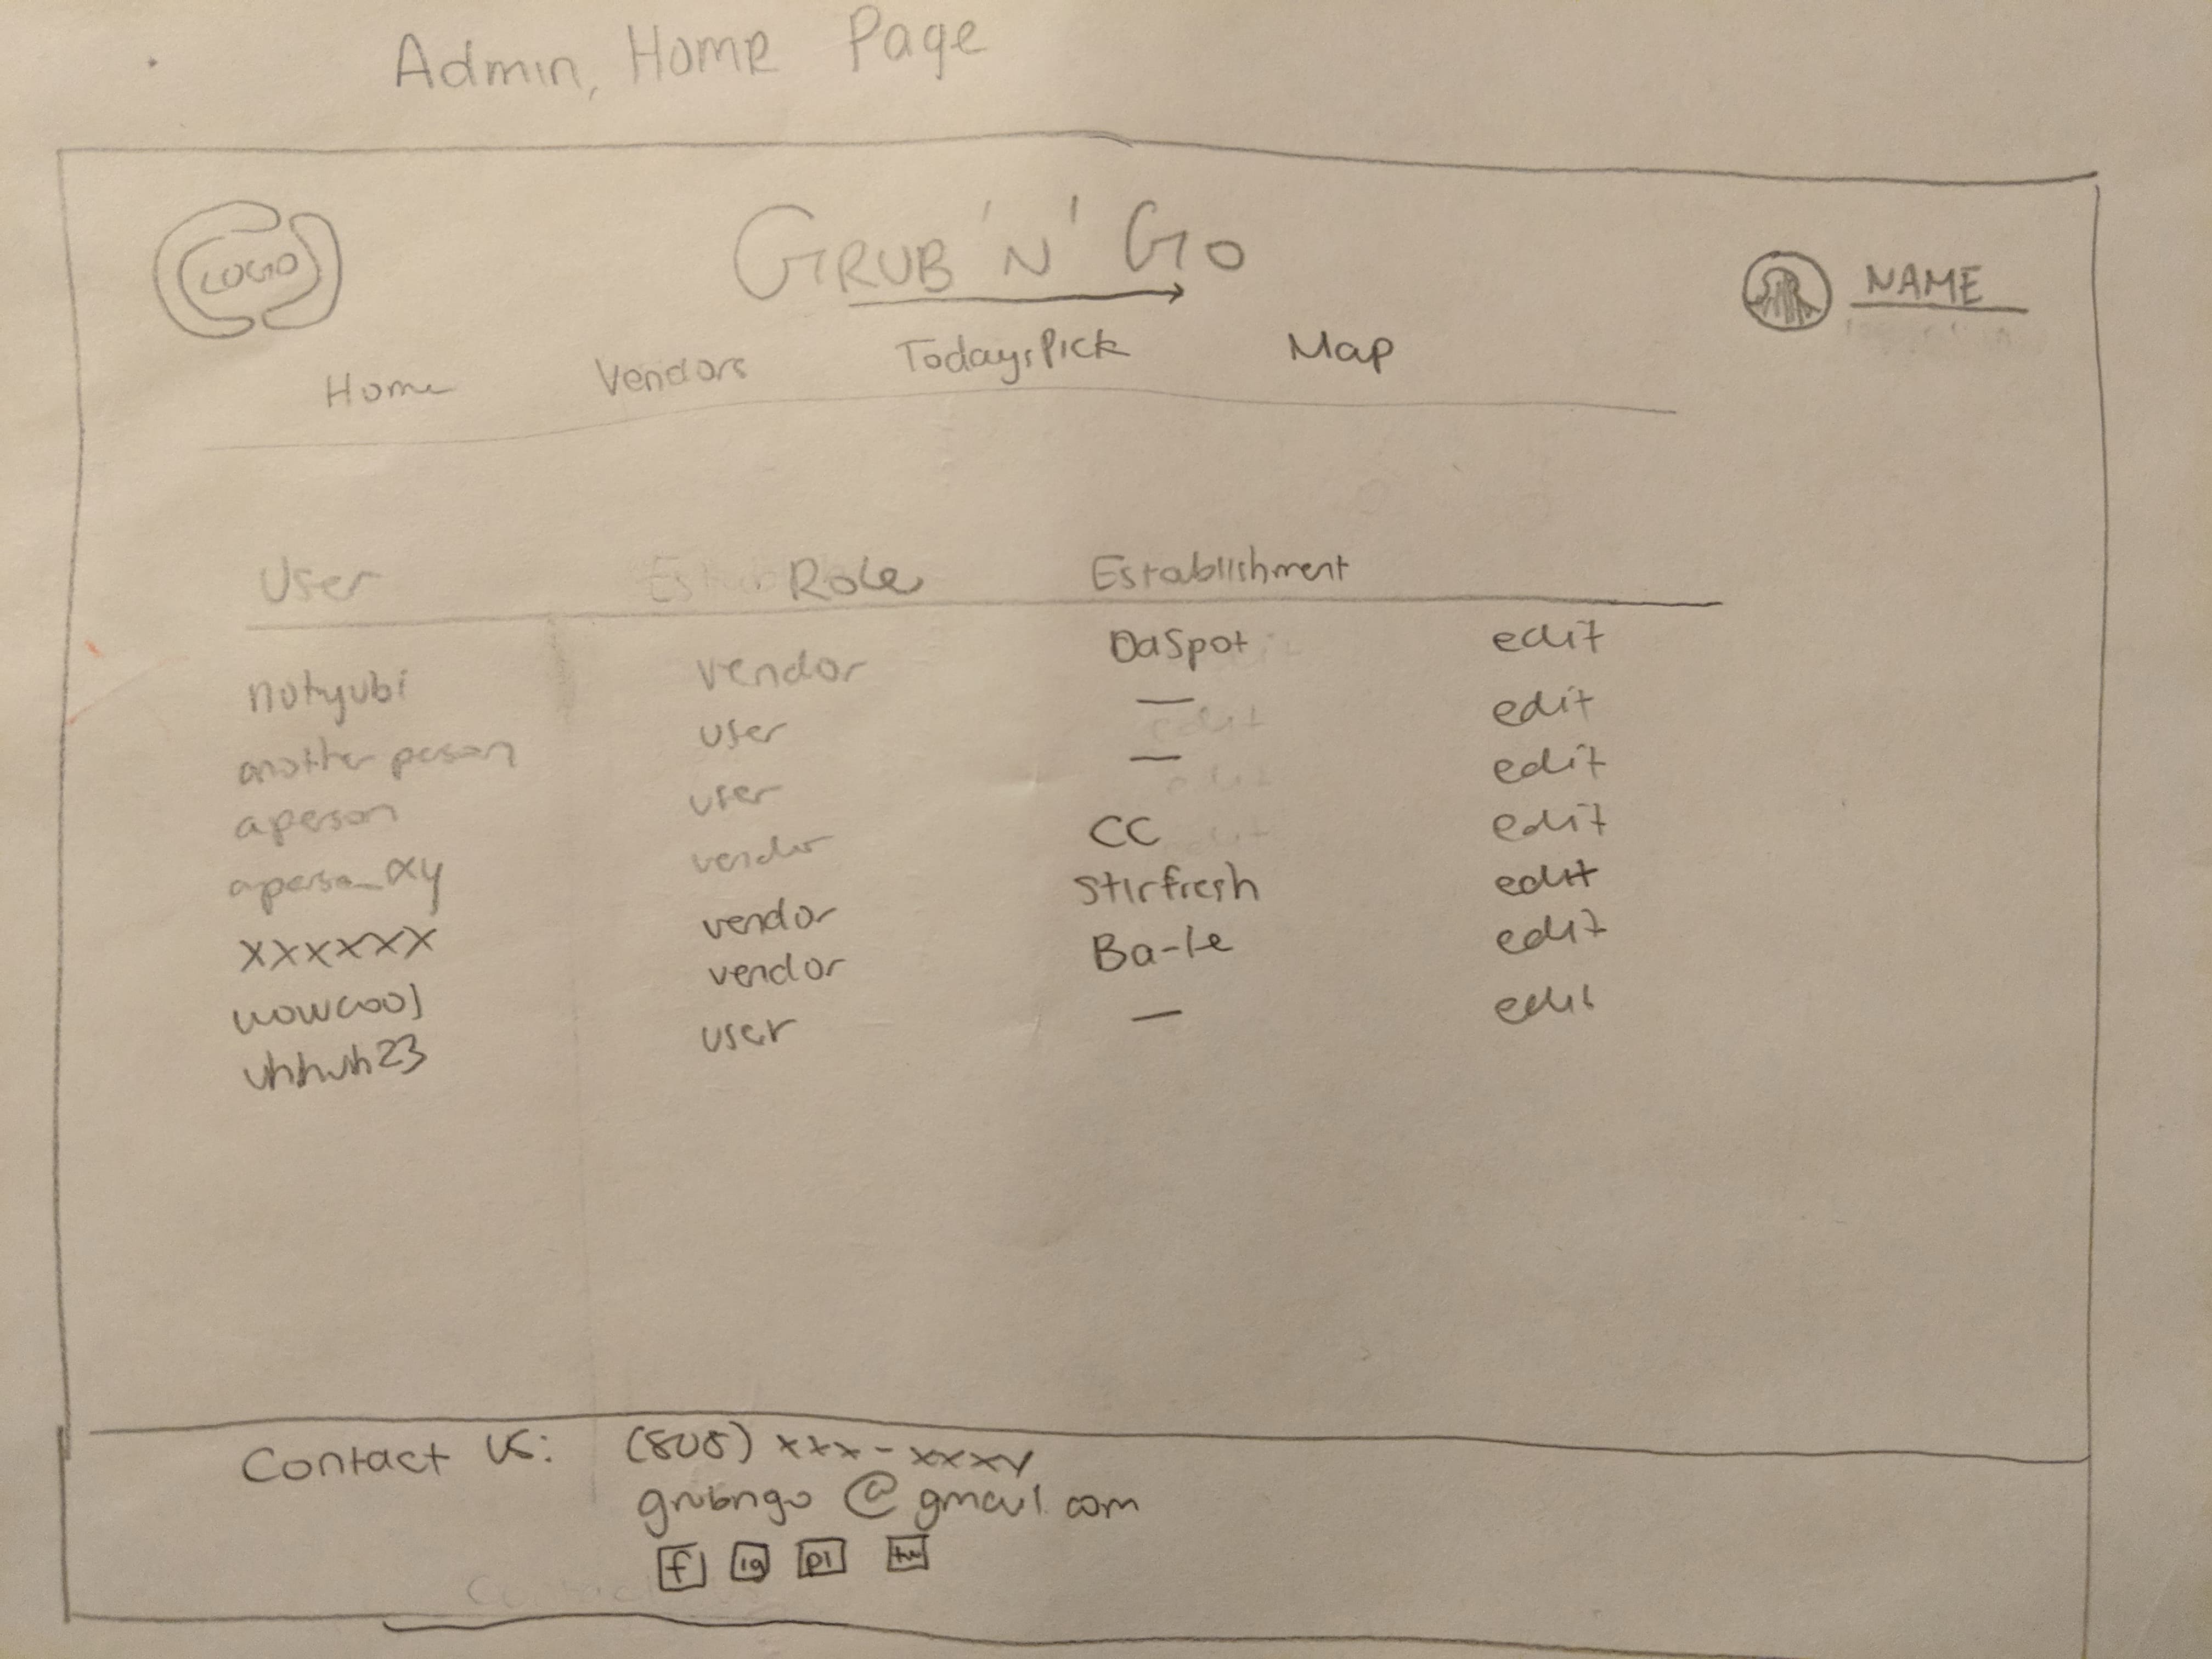 Admin, Home Page
LOGO
GRUB 'N' GO
NAME
Home Vendors Todays Pick Map
User Role Establishment
notyubi vendor DaSpot edit
another person user — edit
aperson user — edit
vendor CC edit
xxxxxx vendor Stirfresh edit
wowcool vendor Ba-le edit
uhhuh23 user — edit
Contact us: (808) xxx-xxxx
grubngo @gmail.com
f ig pi tw